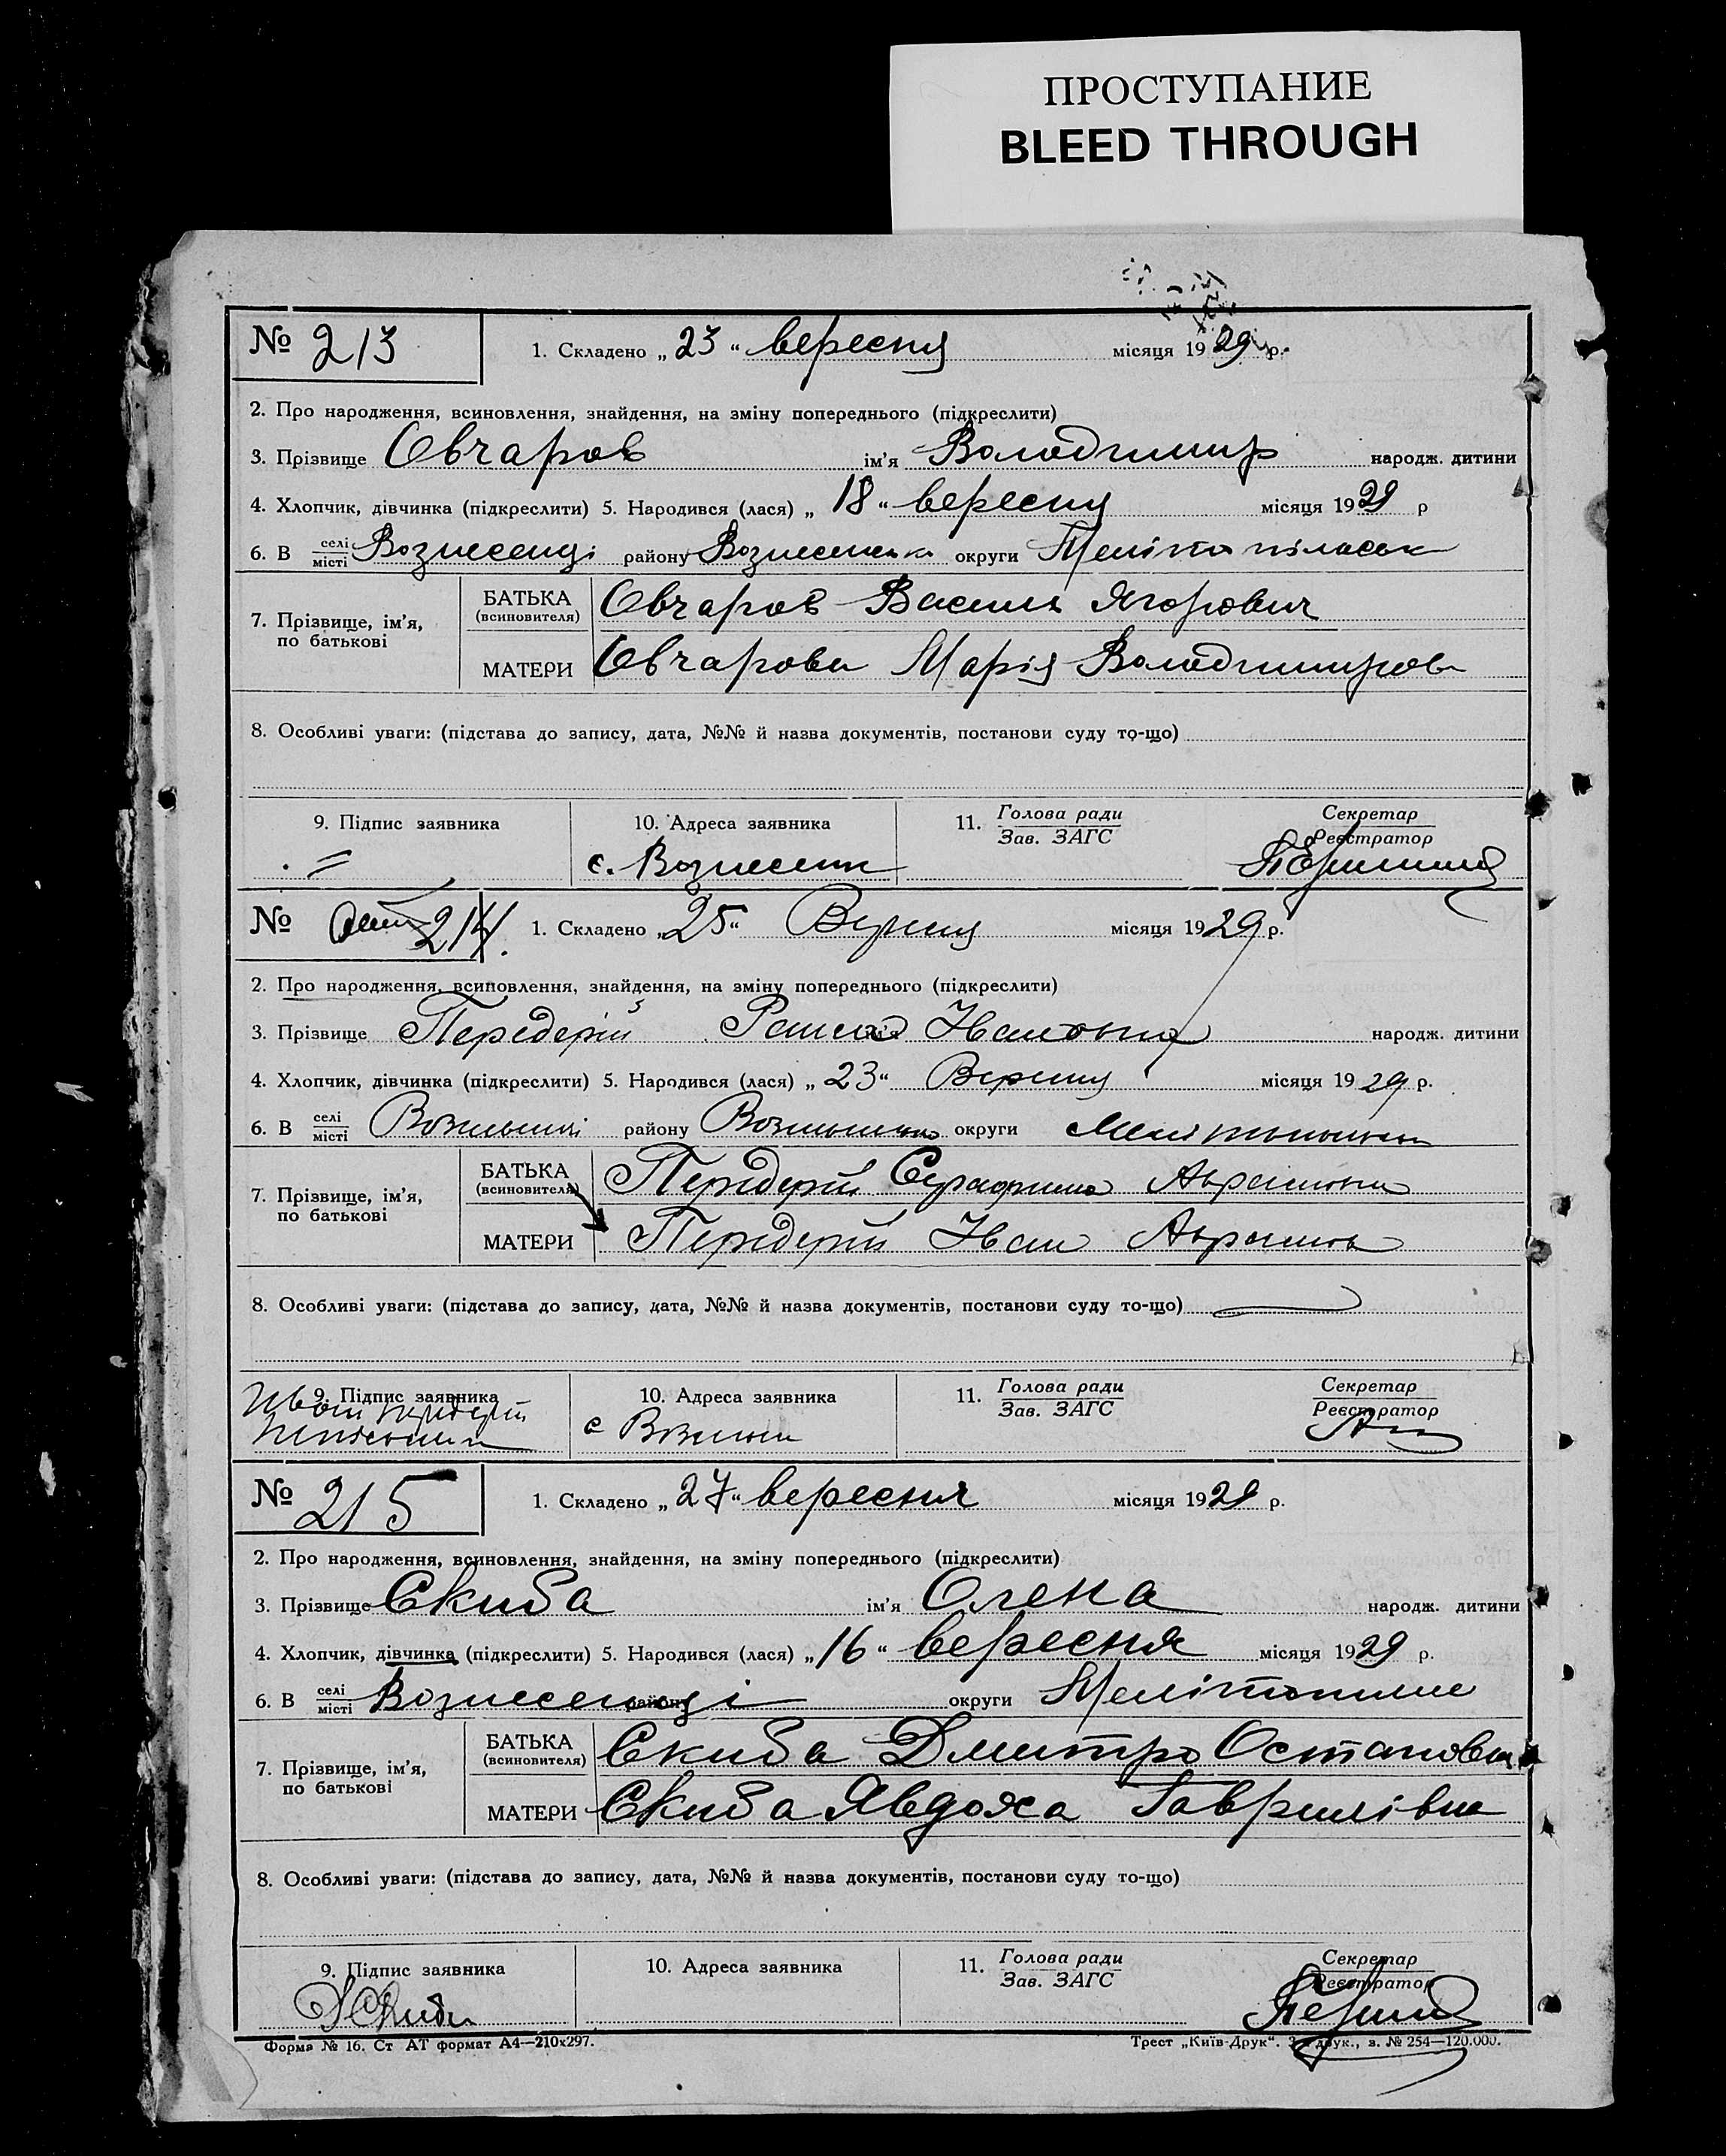 ПРОСТУПАНИЕ
BLEED THROUGH
№ 213 1. Складено „23“ вересня місяця 1929 р.
2. Про народження, всиновлення, знайдення, на зміну попереднього (підкреслити)
3. Прізвище Овчаров ім'я Володимир народж. дитини
4. Хлопчик, дівчинка (підкреслити) 5. Народився (лася) „18“ вересня місяця 1929 р
6. В селі місті Вознесенці району округи
7. Прізвище, ім'я, по батькові
БАТЬКА (всиновителя) Овчаров Василь Ягорович
МАТЕРИ Овчарова Марія Володимиров
8. Особливі уваги: (підстава до запису, дата, №№ й назва документів, постанови суду то-що)
9. Підпис заявника 10. Адреса заявника 11. Голова ради Зав. ЗАГС Секретар Реєстратор
с.
№ 214 1. Складено „25“ місяця 1929 р.
2. Про народження, всиновлення, знайдення, на зміну попереднього (підкреслити)
3. Прізвище Передерій ім'я народж. дитини
4. Хлопчик, дівчинка (підкреслити) 5. Народився (лася) „23“ місяця 1929 р.
6. В селі місті району округи
7. Прізвище, ім'я, по батькові
БАТЬКА (всиновителя) Передерій
МАТЕРИ Передерій Іван
8. Особливі уваги: (підстава до запису, дата, №№ й назва документів, постанови суду то-що)
9. Підпис заявника 10. Адреса заявника 11. Голова ради Зав. ЗАГС Секретар Реєстратор
с
№ 215 1. Складено „27“ вересня місяця 1929 р.
2. Про народження, всиновлення, знайдення, на зміну попереднього (підкреслити)
3. Прізвище Скиба ім'я Олена народж. дитини
4. Хлопчик, дівчинка (підкреслити) 5. Народився (лася) „16“ вересня місяця 1929 р.
6. В селі місті Вознесенці району округи
7. Прізвище, ім'я, по батькові
БАТЬКА (всиновителя) Скиба Дмитро Остапович
МАТЕРИ Скиба Явдоха Гаврилівна
8. Особливі уваги: (підстава до запису, дата, №№ й назва документів, постанови суду то-що)
9. Підпис заявника 10. Адреса заявника 11. Голова ради Зав. ЗАГС Секретар Реєстратор
Форма № 16. Ст АТ формат А4—210х297. Трест „Київ-Друк“. друк., з. № 254—120.000.